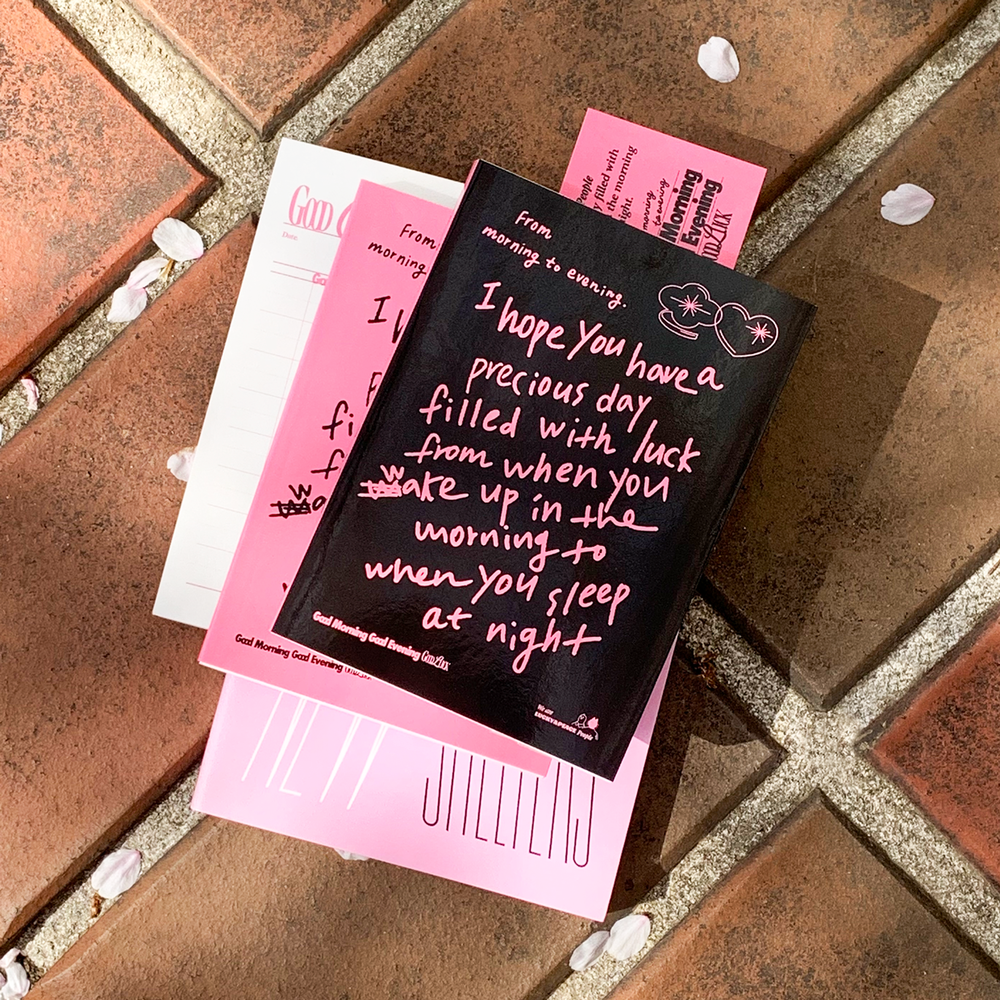 From
morning to evening.
I hope You have a
precious day
filled with luck
from when you
Wake up in the
morning to
when you sleep
at night
Good Morning Good Evening Good Luck
We are
LUCKY&PEACE People
From
morning
I h
fi
f
Wa
Good Morning Good Evening
GOOD
Date:
People
y filled with
the morning
ight.
morning
to evening
Morning
Evening
Luck